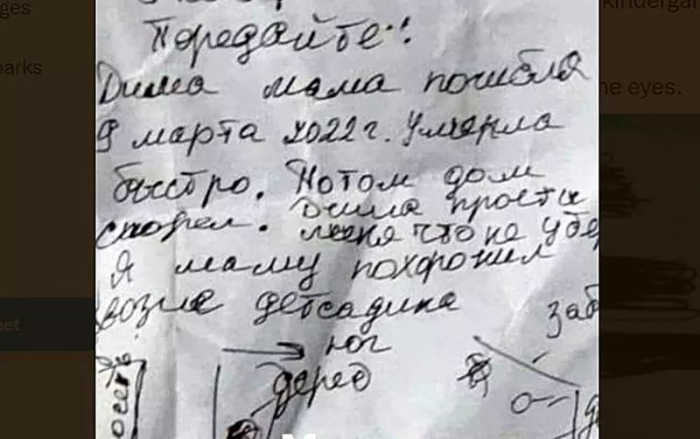 ges
kindergar
Передайте!
Дима мама погибла
arks
he eyes.
9 марта 2022 г. Умерла
быстро. Потом дом
сгорел. Дима прости
меня что не убе
Я маму похоронил
возле детсадика
eet
заб
юг
дерев